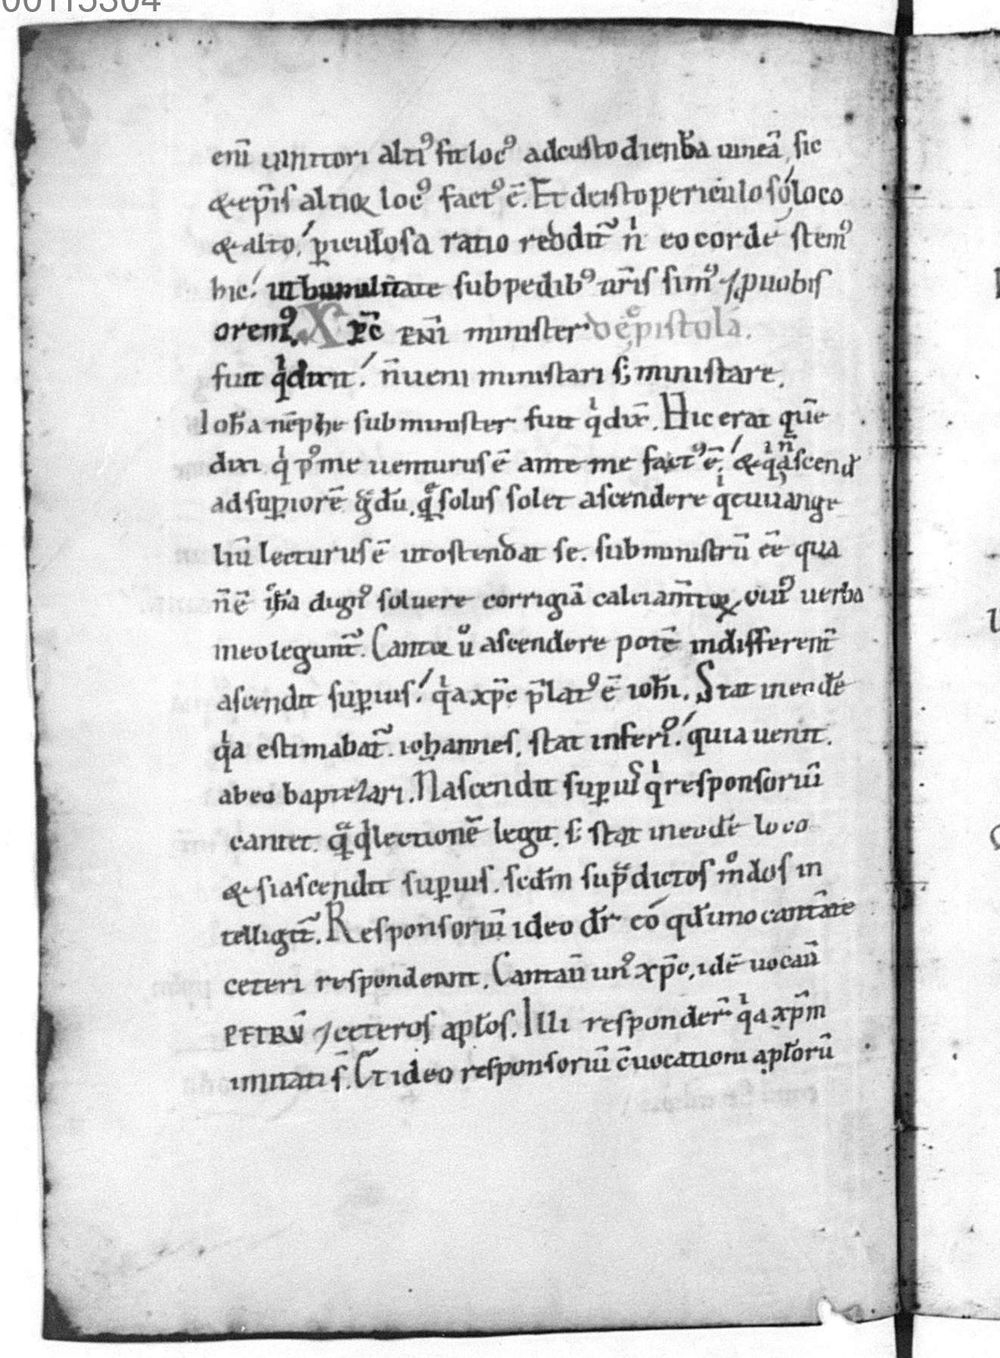 00115304
eni̅ uinitori alti⁹ fit loc⁹ adcustodienda uineā, sic
& ep̅is altioꝝ loc⁹ fact⁹ ē. Et deisto periculoso loco
& alto, ꝑiculosa ratio reddit̅ n̅ eo corde stem⁹
hic. ut humilitate subpedib⁹ ur̅is sim⁹ ⁊ ꝓ uobis
orem⁹. X p̅c eni̅ minister de epistola.
fuit qͥ dixit. n̅ ueni ministari s; ministare.
Ioh̅a neṗhe subminister fuit qͥ dix̅. Hic erat que̅
dixi qͥ p⁹ me uenturus ē ante me fact⁹ ē. & qͥ n̅ ascend̅
ad supiorē g̅dū, q̅ solus solet ascendere qͥ euuange
liū lecturus ē ut ostendat se. subministrū eē qua
n̅ ē dign⁹ soluere corrigiā calciam̅toꝝ, cui⁹ uerba
meo legunt̅. Cantoꝝ u̅ ascendere potē indifferent̅
ascendit supius. qͥa xp̅c p̅lat⁹ ē ioh̅i. Stat in eodē
qͥa estimabat̅. iohannes. stat inferi⁹. quia uenit.
abeo baptizari. N ascendit supius qͥ responsoriū
cantet. qͣ qͥ lectionē legit. s; stat in eodē loco
& si ascendit supius. sedm sup̅dictos mͦdos in
telligit̅. Responsoriū ideo dr̅ eo qd̅ uno cantāte
ceteri respondeant. Cantau̅ un⁹ xp̅c, idē uocau̅
PETRŪ ⁊ ceteros apl̅os. Illi responder̅ qͥa xp̅m
imitati s̅. Et ideo responsoriū c̅uocationi apl̅orū